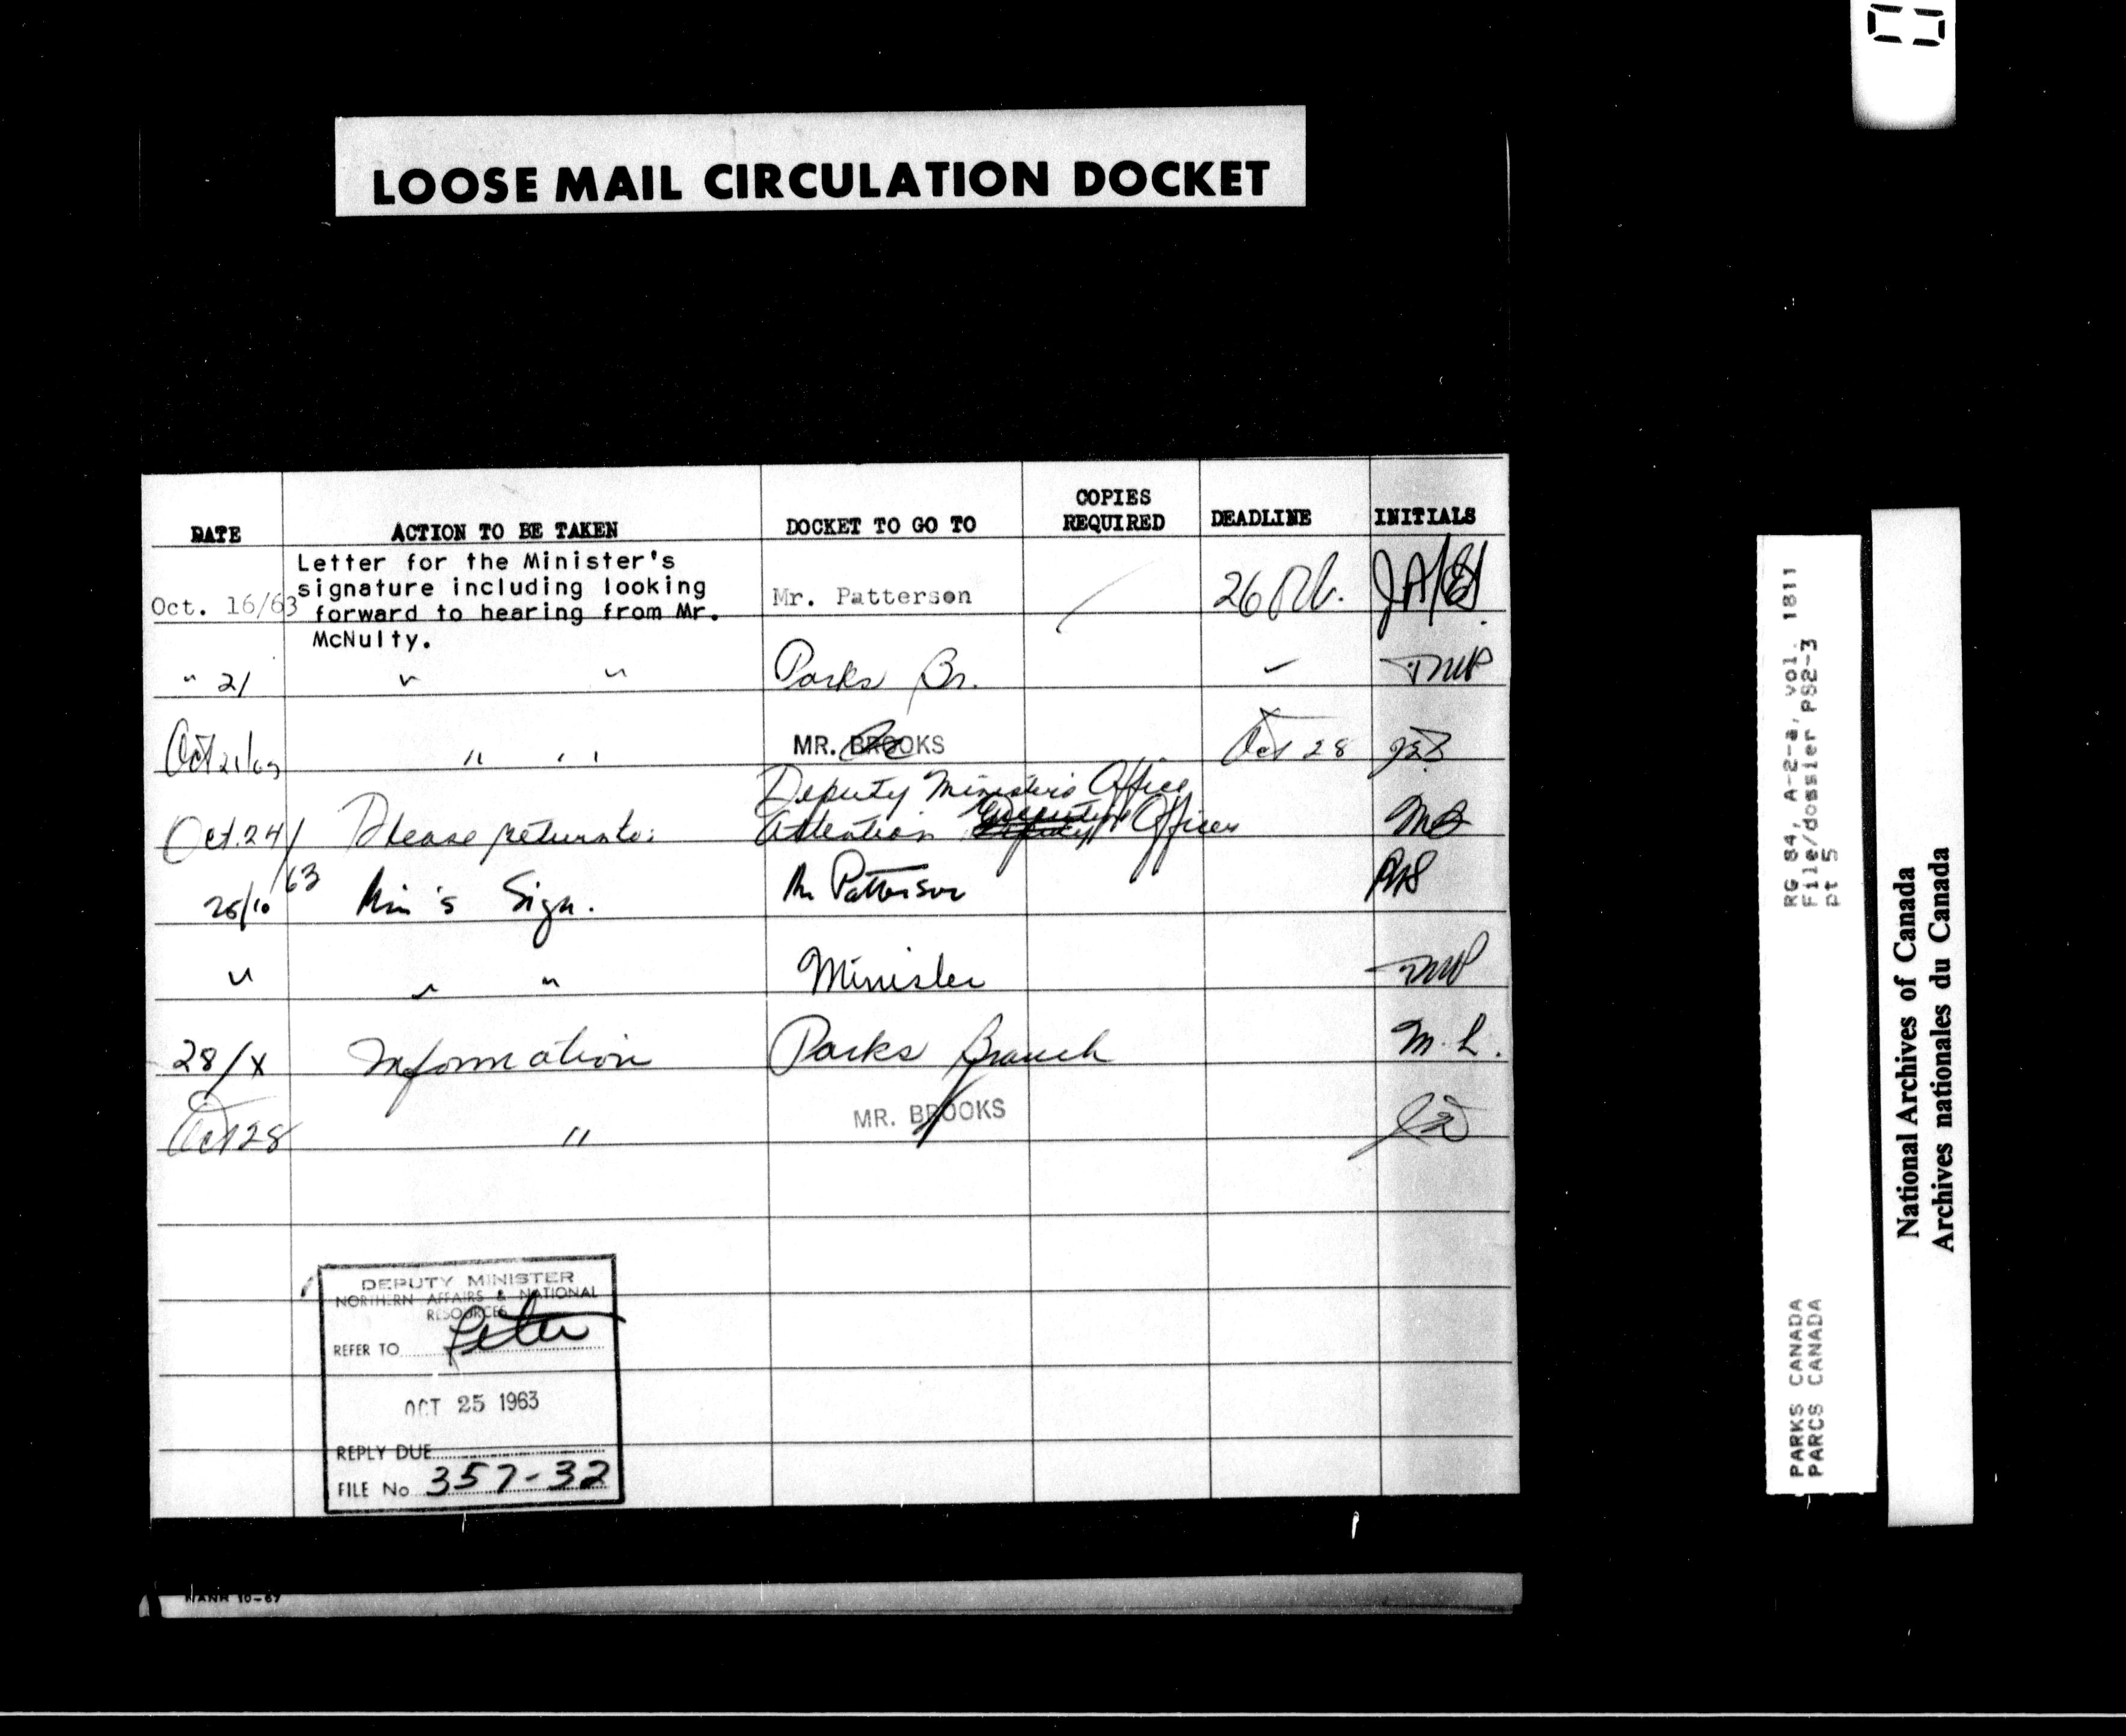 LOOSE MAIL CIRCULATION DOCKET
DATE ACTION TO BE TAKEN DOCKET TO GO TO COPIES REQUIRED DEADLINE INITIALS
Letter for the Minister's
signature including looking
Oct. 16/63 forward to hearing from Mr. Mr. Patterson 26
McNulty.
" 21 " " Parks Br. TMP
Oct 21/63 " " MR. BROOKS Oct 28
Deputy Minister's Office
Oct. 24/63 Please return to: Attention Executive Officer MB
25/10 Min's Sign. Mr Patterson
" " " Minister TMP
28/X Information Parks Branch M.L.
Oct 28 " MR. BROOKS
DEPUTY MINISTER
NORTHERN AFFAIRS & NATIONAL
RESOURCES
REFER TO Peter
OCT 25 1963
REPLY DUE
FILE No 357-32
HANR 10-67
RG 84, A-2-a, vol. 1811
File/dossier PS2-3
pt 5
PARKS CANADA
PARCS CANADA
National Archives of Canada
Archives nationales du Canada